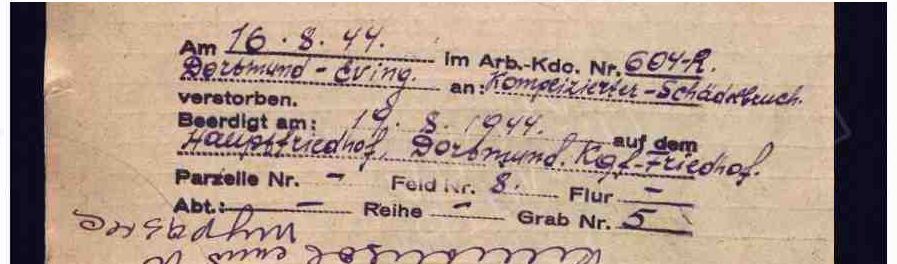 Am 16.8.44. im Arb.-Kdo. Nr. 604-R.
Dortmund-Eving. an: Komplizierter-Schädelbruch.
verstorben.
Beerdigt am: 19.8.1944. auf dem
Hauptfriedhof, Dortmund. Kgf-Friedhof.
Parzelle Nr. - Feld Nr. 8. Flur -
Abt.: - Reihe - Grab Nr. 5